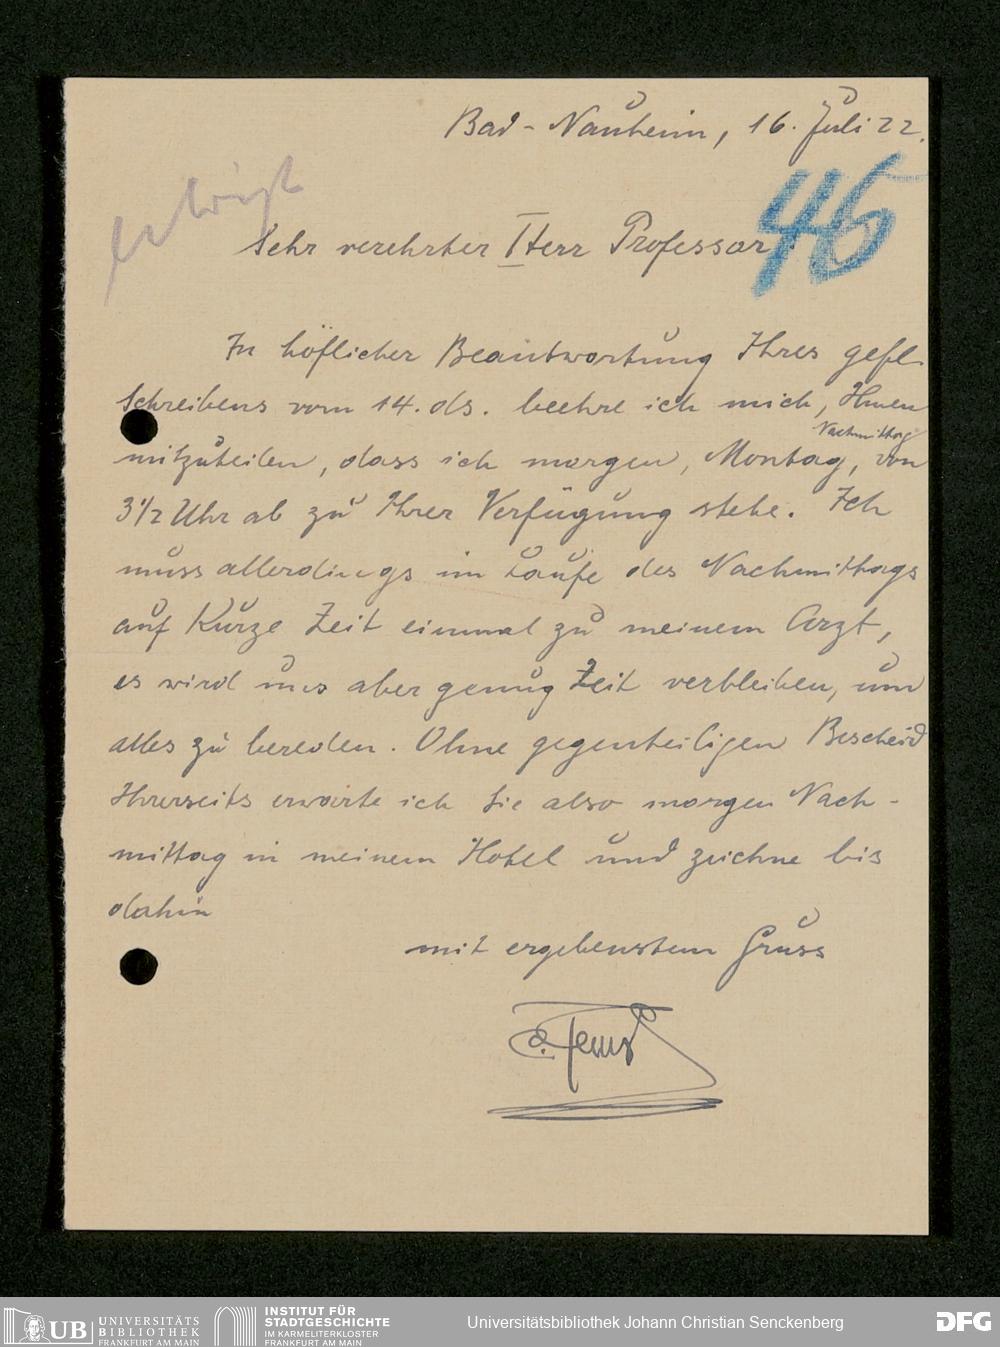 Bad-Nauheim, 16. Juli 22.
46
erledigt
Sehr verehrter Herr Professor!
In höflicher Beantwortung Ihres gefl.
Schreibens vom 14. ds. beehre ich mich, Ihnen
Nachmittag
mitzuteilen, dass ich morgen, Montag, von
3 1/2 Uhr ab zu Ihrer Verfügung stehe. Ich
muss allerdings im Laufe des Nachmittags
auf kurze Zeit einmal zu meinem Arzt,
es wird uns aber genug Zeit verbleiben, um
alles zu bereden. Ohne gegenteiligen Bescheid
Ihrerseits erwarte ich Sie also morgen Nach-
mittag in meinem Hotel und zeichne bis
dahin
mit ergebenstem Gruss
UB UNIVERSITÄTS
BIBLIOTHEK
FRANKFURT AM MAIN
INSTITUT FÜR
STADTGESCHICHTE
IM KARMELITERKLOSTER
FRANKFURT AM MAIN
Universitätsbibliothek Johann Christian Senckenberg
DFG